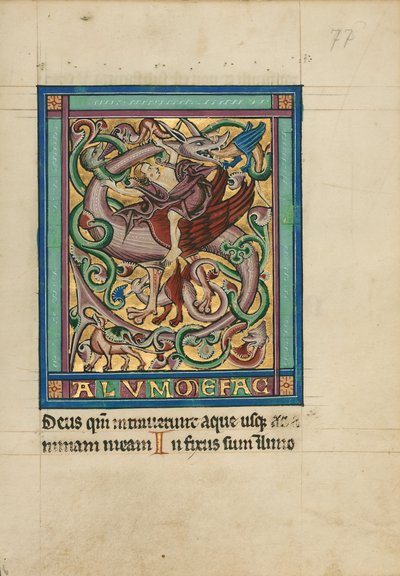 77
ALVVM ME FAC
Deus qm̄ intrauerunt aque usq; ad a
nimam meam In fixus sum in limo